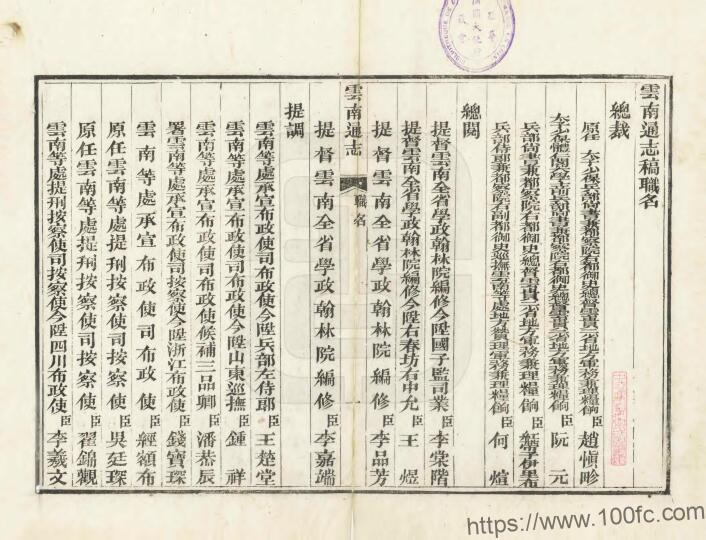 雲南通志稿職名
總裁
原任 太子少保兵部尚書兼都察院右都御史總督雲貴二省地方軍務兼理糧餉臣趙慎畛
太子少保體仁閣大學士前兵部尚書兼都察院右都御史總督雲貴二省地方軍務兼理糧餉臣阮元
兵部尚書兼都察院右都御史總督雲貴二省地方軍務兼理糧餉臣伊里布
兵部侍郎兼都察院右副都御史巡撫雲南等處地方贊理軍務兼理糧餉臣何煊
總閱
提督雲南全省學政翰林院編修今陞國子監司業臣李棠階
提督雲南全省學政翰林院編修今陞右春坊右中允臣王煜
提督雲南全省學政翰林院編修臣李品芳
雲南通志 職名
提督雲南全省學政翰林院編修臣李嘉端
提調
雲南等處承宣布政使司布政使今陞兵部左侍郎臣王楚堂
雲南等處承宣布政使司布政使今陞山東巡撫臣鍾祥
雲南等處承宣布政使司布政使候補三品卿臣潘恭辰
署雲南等處承宣布政使司按察使今陞浙江布政使臣錢寶琛
雲南等處承宣布政使司布政使臣經額布
原任雲南等處提刑按察使司按察使臣吳廷琛
原任雲南等處提刑按察使司按察使臣翟錦觀
雲南等處提刑按察使司按察使今陞四川布政使臣李羲文
https://www.100fc.com